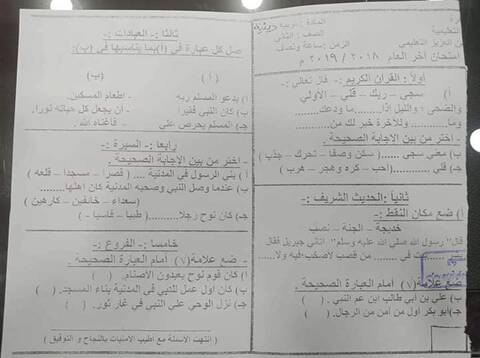 المادة : التربية دينية
التعليمية
الصف : الثاني
العزيز التعليمي
الزمن : ساعة ونصف
امتحان آخر العام ٢٠١٨ / ٢٠١٩ م
أولاً : القرآن الكريم :- قال تعالي :-
أ) سجى – ربك – قلي – الاولي
والضحى ، والليل اذا........ ما ودعك.........
وما........ وللآخرة خير لك من........
- اختر من بين الإجابة الصحيحة :-
ب) معني سجي........ ( سكن وصفا – تحرك – جذب )
ج) قلي........ (احب – كره وهجر – هرب )
ثانياً :الحديث الشريف :-
أ) ضع مكان النقط :-
خديجة – الجنة – نصب
قال" رسول الله صلي الله عليه وسلم" اتاني جبريل فقال
بيت في ........ من قصب لاصخب فيه ولا....
ضع علامة(√) أمام العبارة الصحيحة .
ب) علي بن أبي طالب ابن عم النبي .
ج) أبو بكر اول من آمن من الرجال.
ثالثا :- العبادات :-
صل كل عبارة في (أ)بما يناسبها في (ب):
( أ ) (ب)
أ) يدعو المسلم ربه - اطعام المسكين.
ب) كان النبي فقيرا - ان يجعل كل حياته نورا.
ج) المسلم يحرص علي - فأغناه الله .
رابعا :- السيرة :-
- اختر من بين الاجابة الصحيحة .
أ) بنى الرسول في المدنية .... ( قصرا – مسجدا – قلعه )
ب) عندما وصل النبي وصحبه المدنية كان اهلها........
(سعداء – خائفين – كارهين )
ج) كان نوح رجلا........( طيبا – قاسيا - )
خامسا :- الفروع :-
- ضع علامة(√) أمام العبارة الصحيحة .
أ) كان قوم نوح يعبدون الأصنام.
ب) كان أول عمل للنبي في المدنية بناء المسجد.
ج) نزل الوحي على النبي في غار ثور.
( انتهت الاسئلة مع اطيب الامنيات بالنجاح و التوفيق )